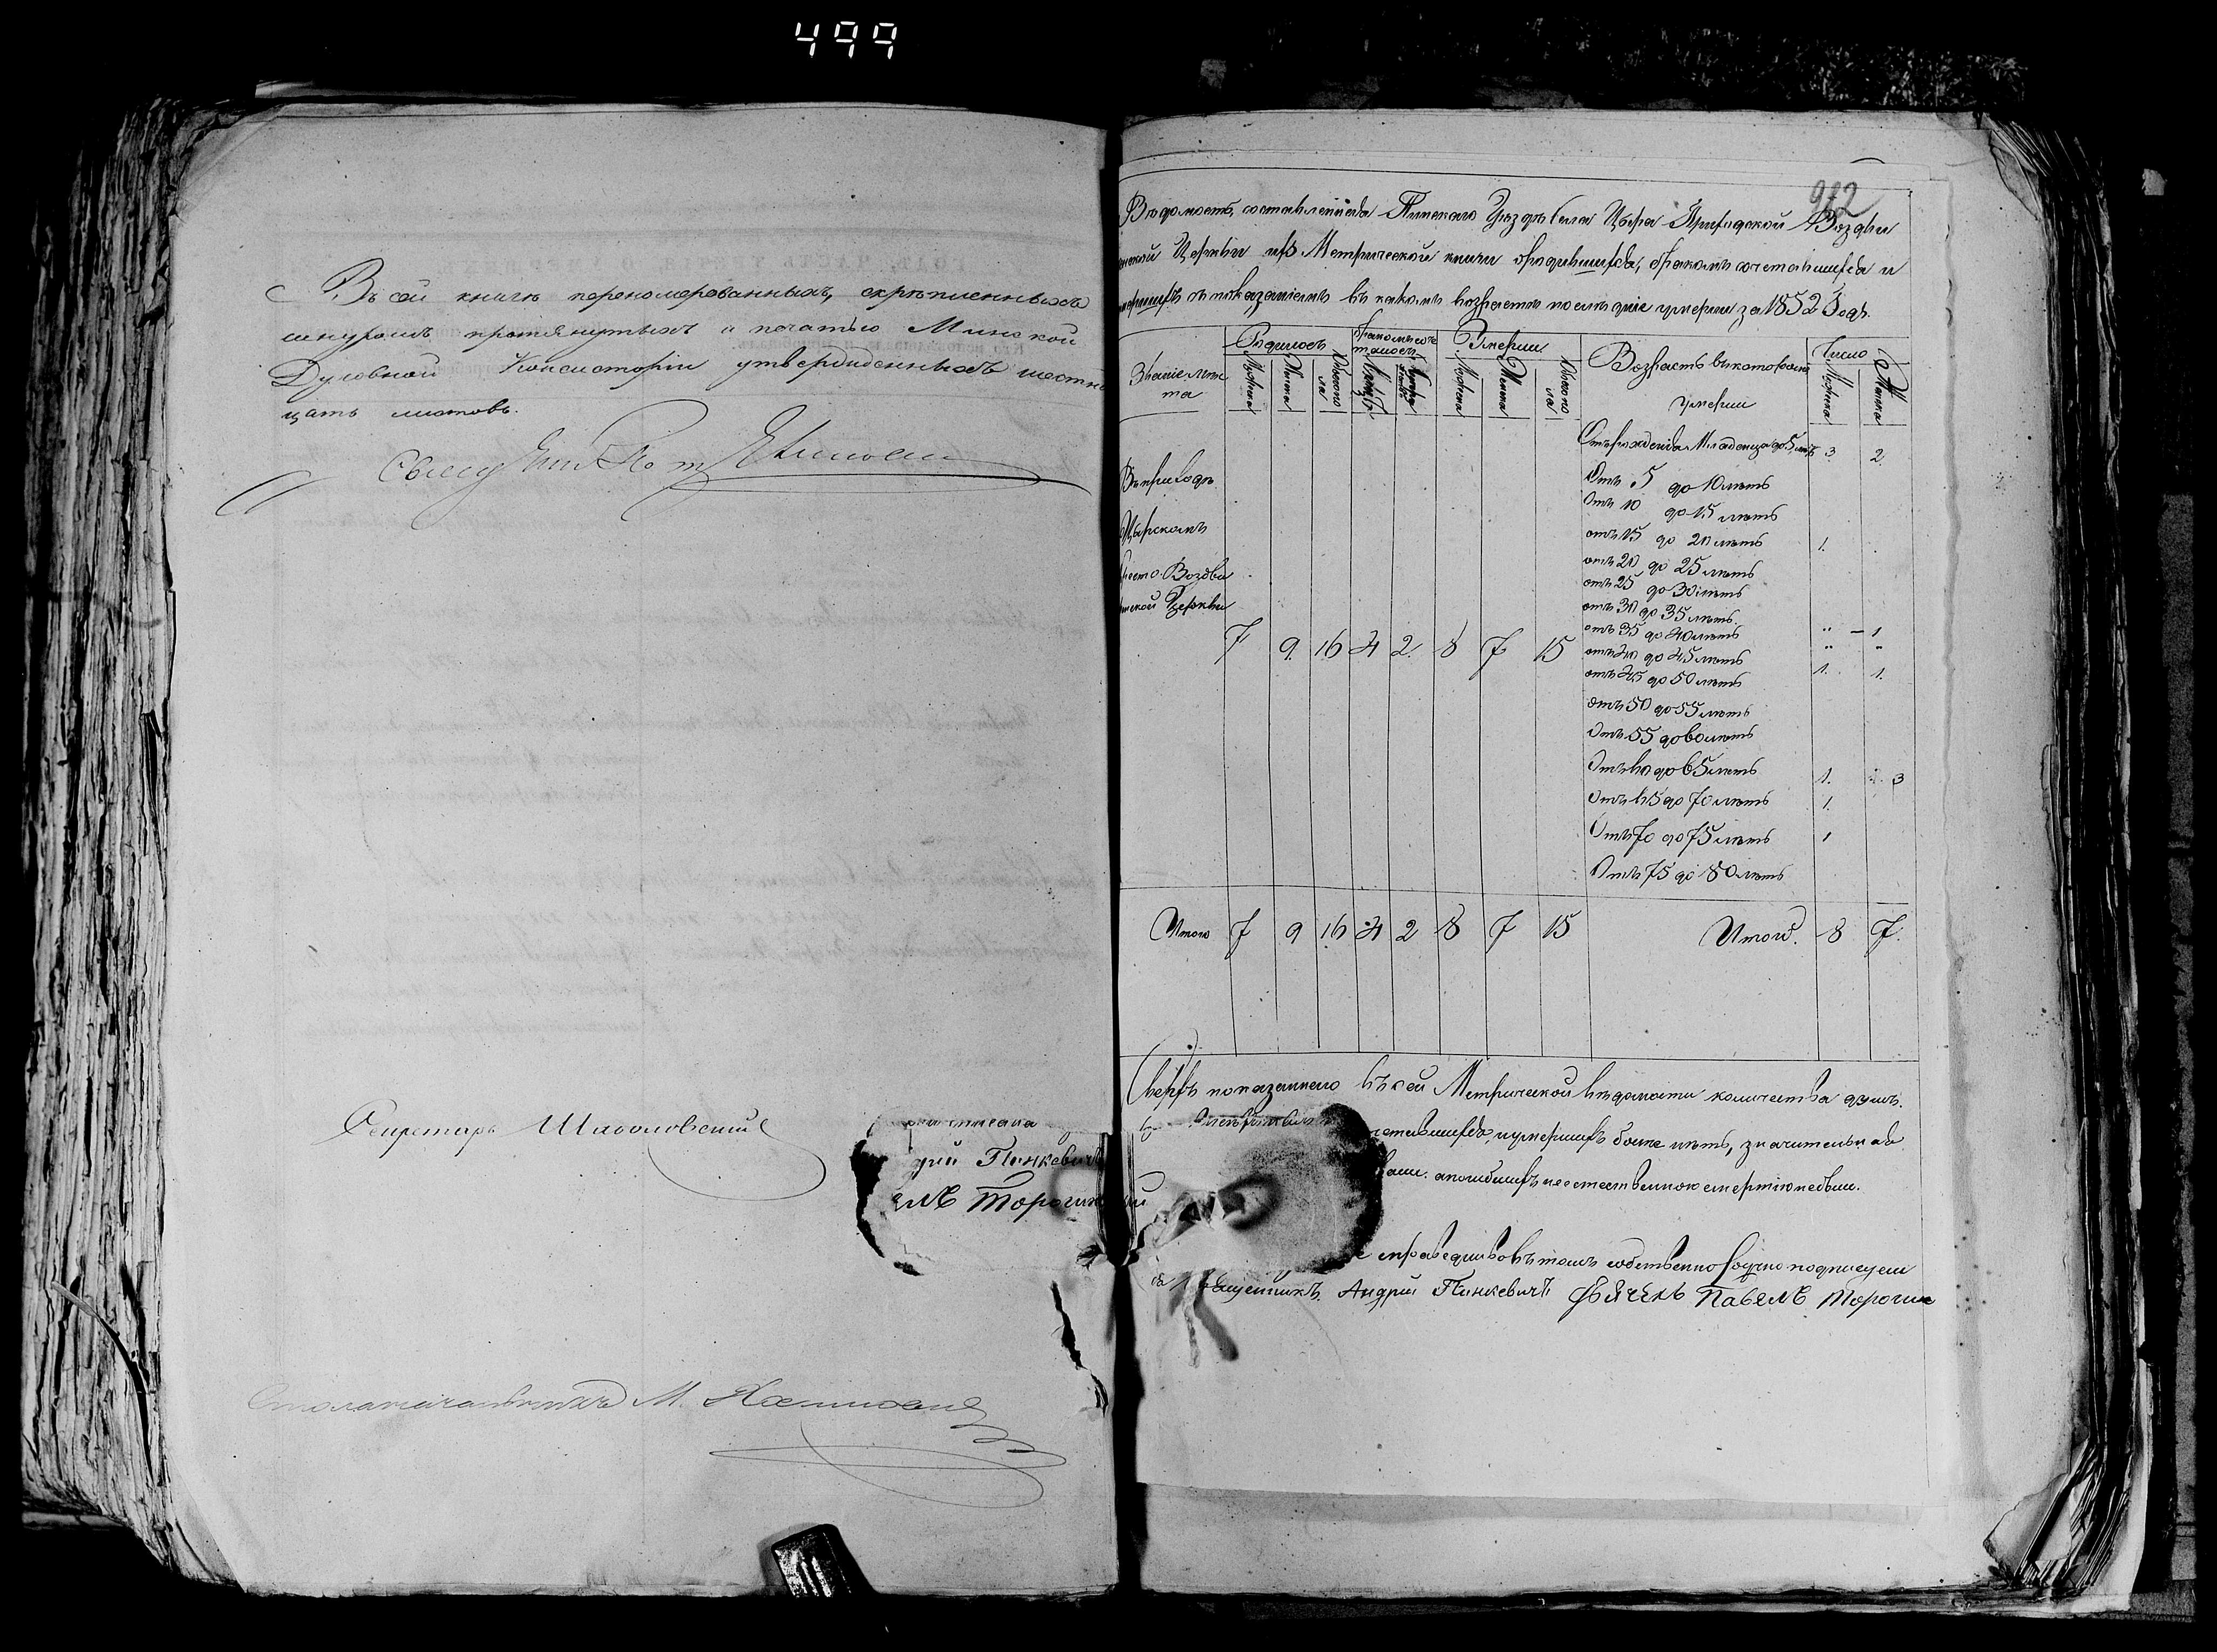 499
Въ сей книгѣ перенумерованныхъ, скрѣпленныхъ
шнуромъ протянутыхъ и печатью Минской
Духовной Консисторіи утвержденныхъ шестнад
цать листовъ.
Секретарь
Столоначальникъ М.
дрій Пинкевичъ
елъ Торогин
912
Вѣдомость, составленная Пинскаго Уѣзда Села Цыра Приходской Воздви
женской Церкви изъ Метрической книги о родившихся, бракомъ сочетавшихся и
умершихъ съ показаніемъ въ какомъ возрастѣ после дніе умерли за 1852 Годъ.
Званіе мѣс
та
Родилось
Бракомъ соче
талось
Умерли
Возрастъ въ которомъ
умерли
Число
Мужска
Женска
Обоего по
ла
Мужска
Женска
Обоего по
ла
Мужска
Женска
Въ приходѣ
Цырскомъ
Кресто-Воздви
женской Церкви
7 9. 16 4 2. 8 7 15
Отъ рожденія Младенца до 5 лѣтъ 3 2.
Отъ 5 до 10 лѣтъ
Отъ 10 до 15 лѣтъ
отъ 15 до 20 лѣтъ 1.
отъ 20 до 25 лѣтъ
отъ 25 до 30 лѣтъ
отъ 30 до 35 лѣтъ
отъ 35 до 40 лѣтъ " – 1
отъ 40 до 45 лѣтъ " "
отъ 45 до 50 лѣтъ 1. 1.
отъ 50 до 55 лѣтъ
Отъ 55 до 60 лѣтъ
Отъ 60 до 65 лѣтъ 1. 3
Отъ 65 до 70 лѣтъ 1.
Отъ 70 до 75 лѣтъ 1
Отъ 75 до 80 лѣтъ
Итого 7 9 16 4 2 8 7 15 Итого. 8 7.
Сверхъ показаннаго въ сей Метрической вѣдомости количества душъ.
четавшихся, умершихъ более лѣтъ, значительная
а погибшихъ неестественною смертію небыли.
справедливо въ томъ собственно ручно подписуем
Священникъ Андрій Пинкевичъ Дьячекъ Павелъ Торогин